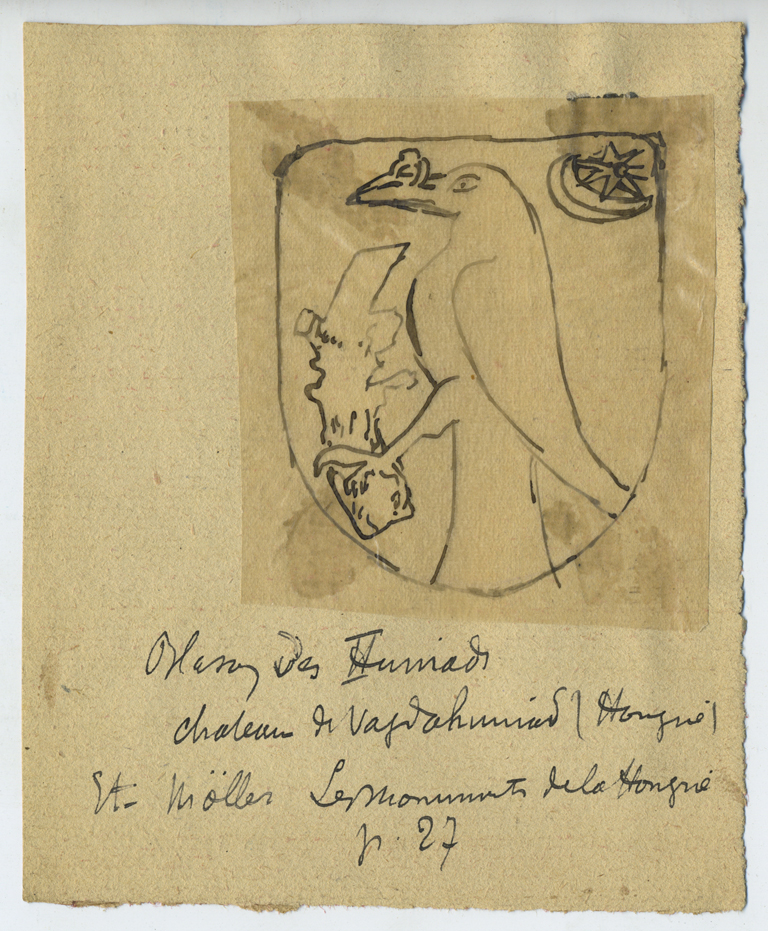 Blason des Huniads
chateau de Vajdahuniad (Hongrie)
Et. Möller Les monuments de la Hongrie
p. 27